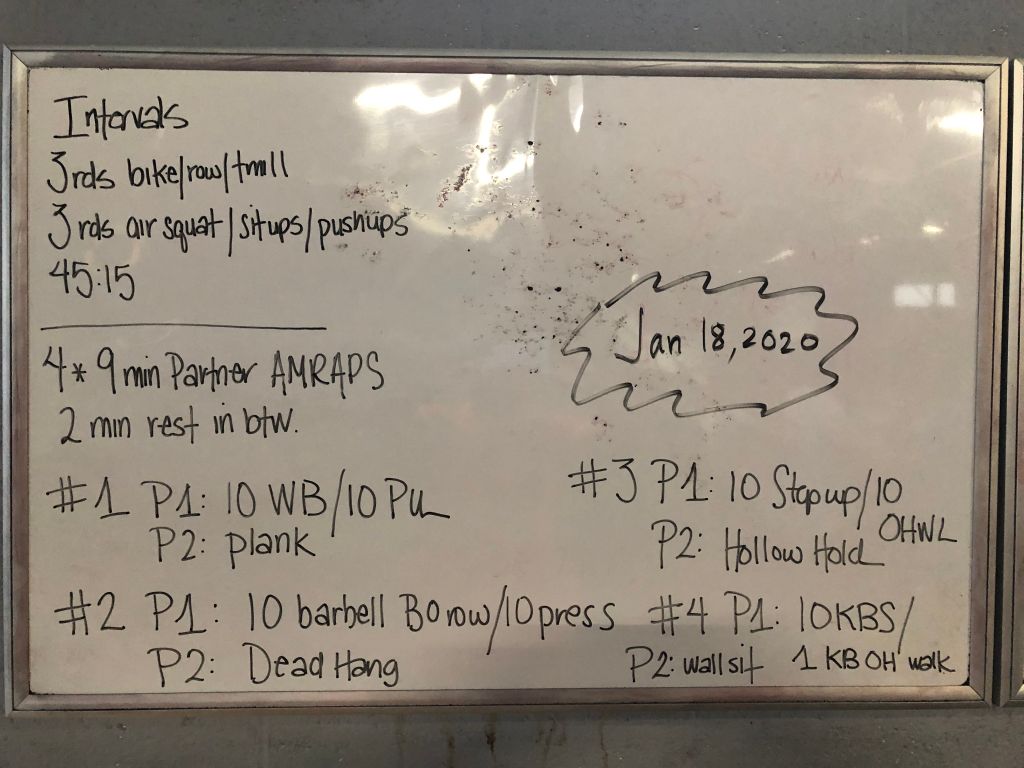 Intervals
3rds bike/row/tmill
3rds air squat/situps/pushups
45:15
4* 9 min Partner AMRAPS
2 min rest in btw.
#1 P1: 10 WB/10 PU
P2: plank
#2 P1: 10 barbell BO row/10 press
P2: Dead Hang
Jan 18, 2020
#3 P1: 10 Step up/10
OHWL
P2: Hollow Hold
#4 P1: 10 KBS/
1 KB OH walk
P2: wall sit